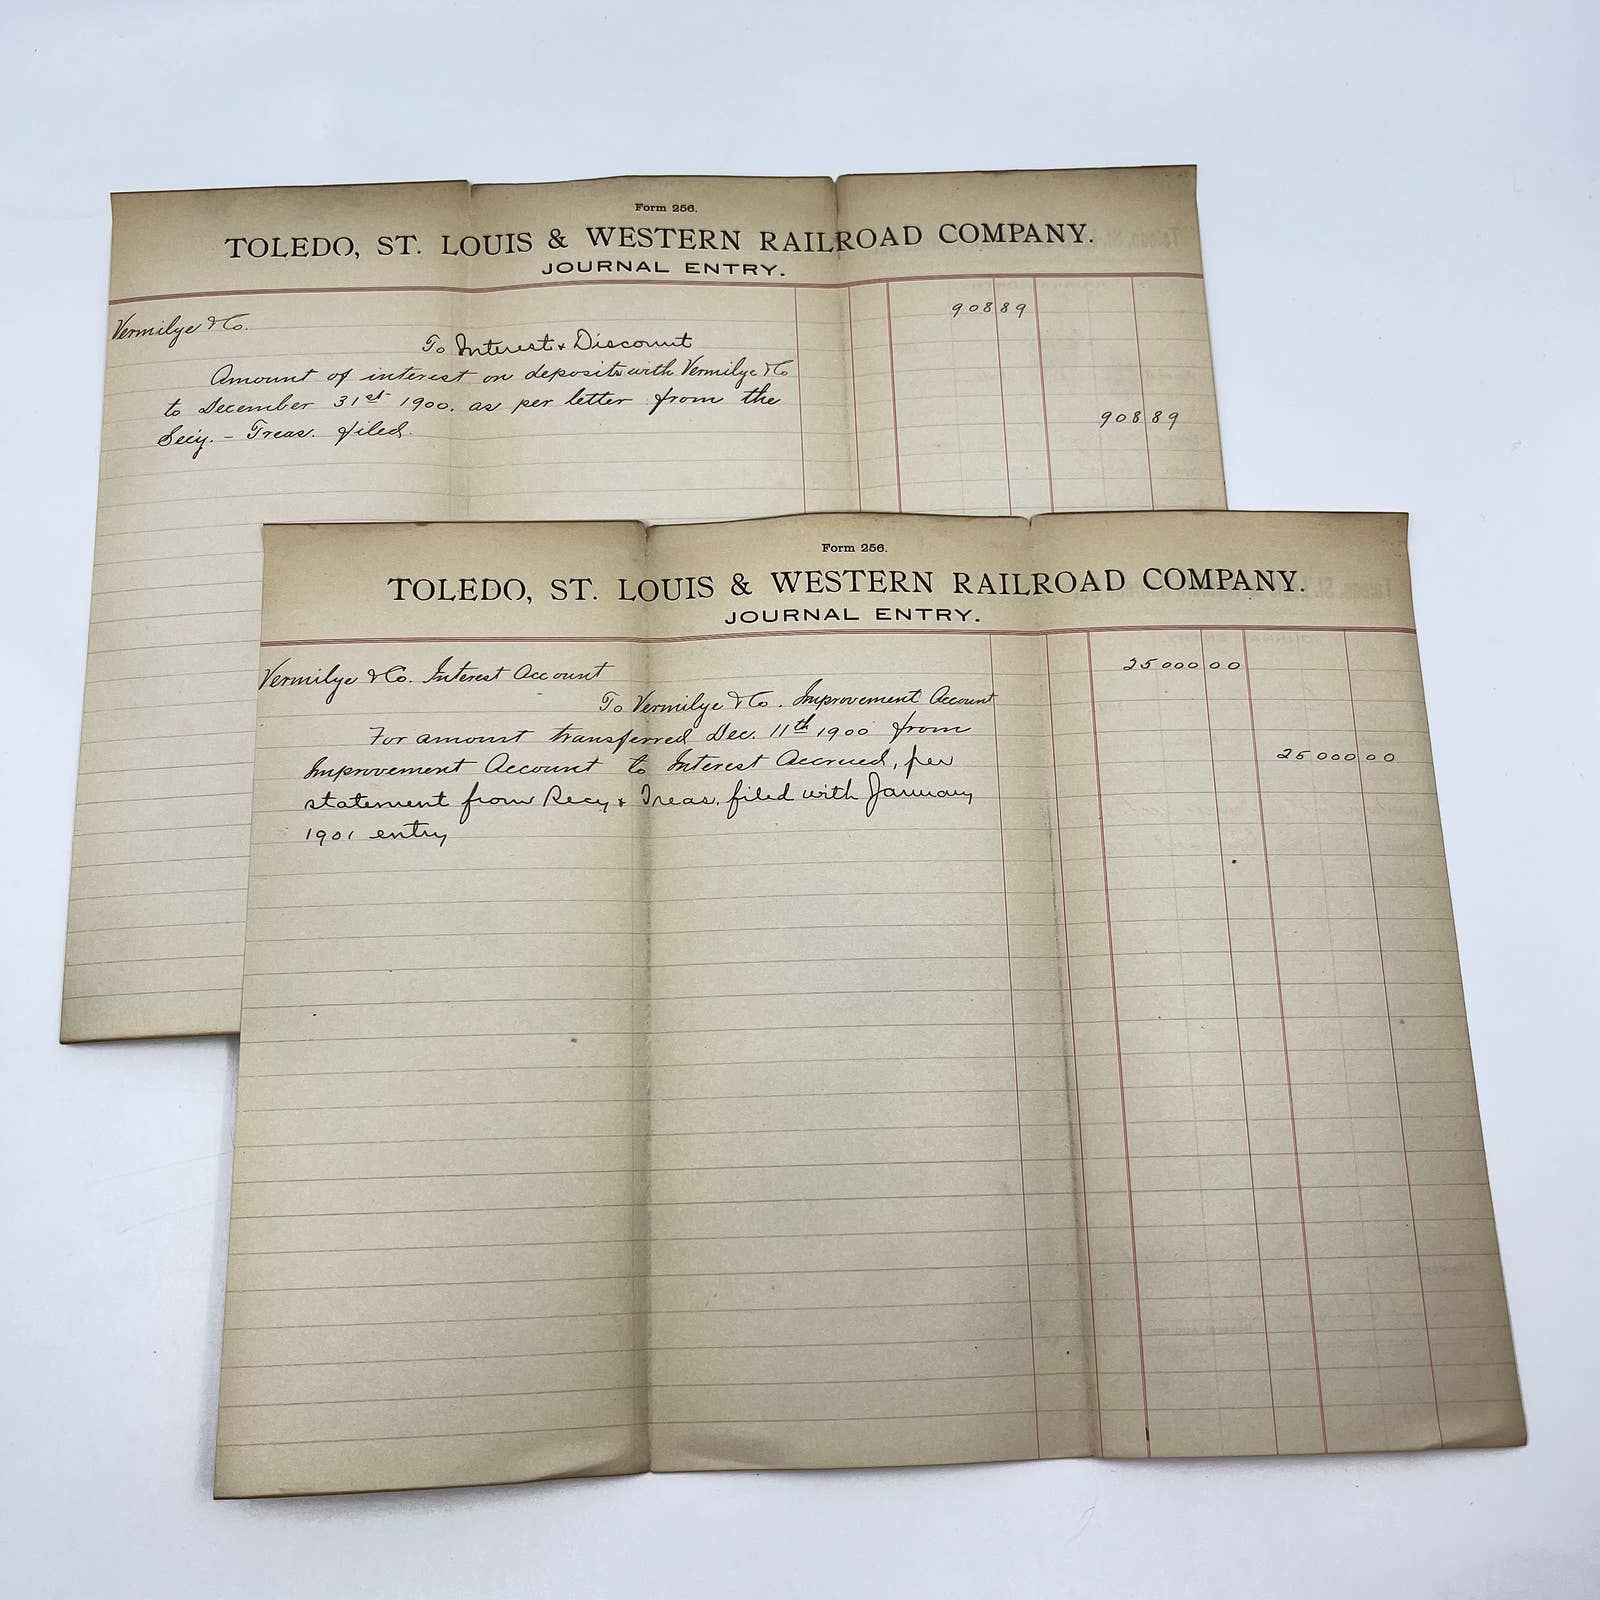 Form 256.
TOLEDO, ST. LOUIS & WESTERN RAILROAD COMPANY.
JOURNAL ENTRY.
Vermilye & Co. 908 89
To Interest & Discount
Amount of interest on deposits with Vermilye & Co
to December 31st 1900. as per letter from the
Secy. - Treas. filed. 908 89
Form 256.
TOLEDO, ST. LOUIS & WESTERN RAILROAD COMPANY.
JOURNAL ENTRY.
Vermilye & Co. Interest Account 25000 00
To Vermilye & Co. Improvement Account
For amount transferred Dec. 11th 1900 from
Improvement Account to Interest Accrued, per 25000 00
statement from Secy & Treas. filed with January
1901 entry